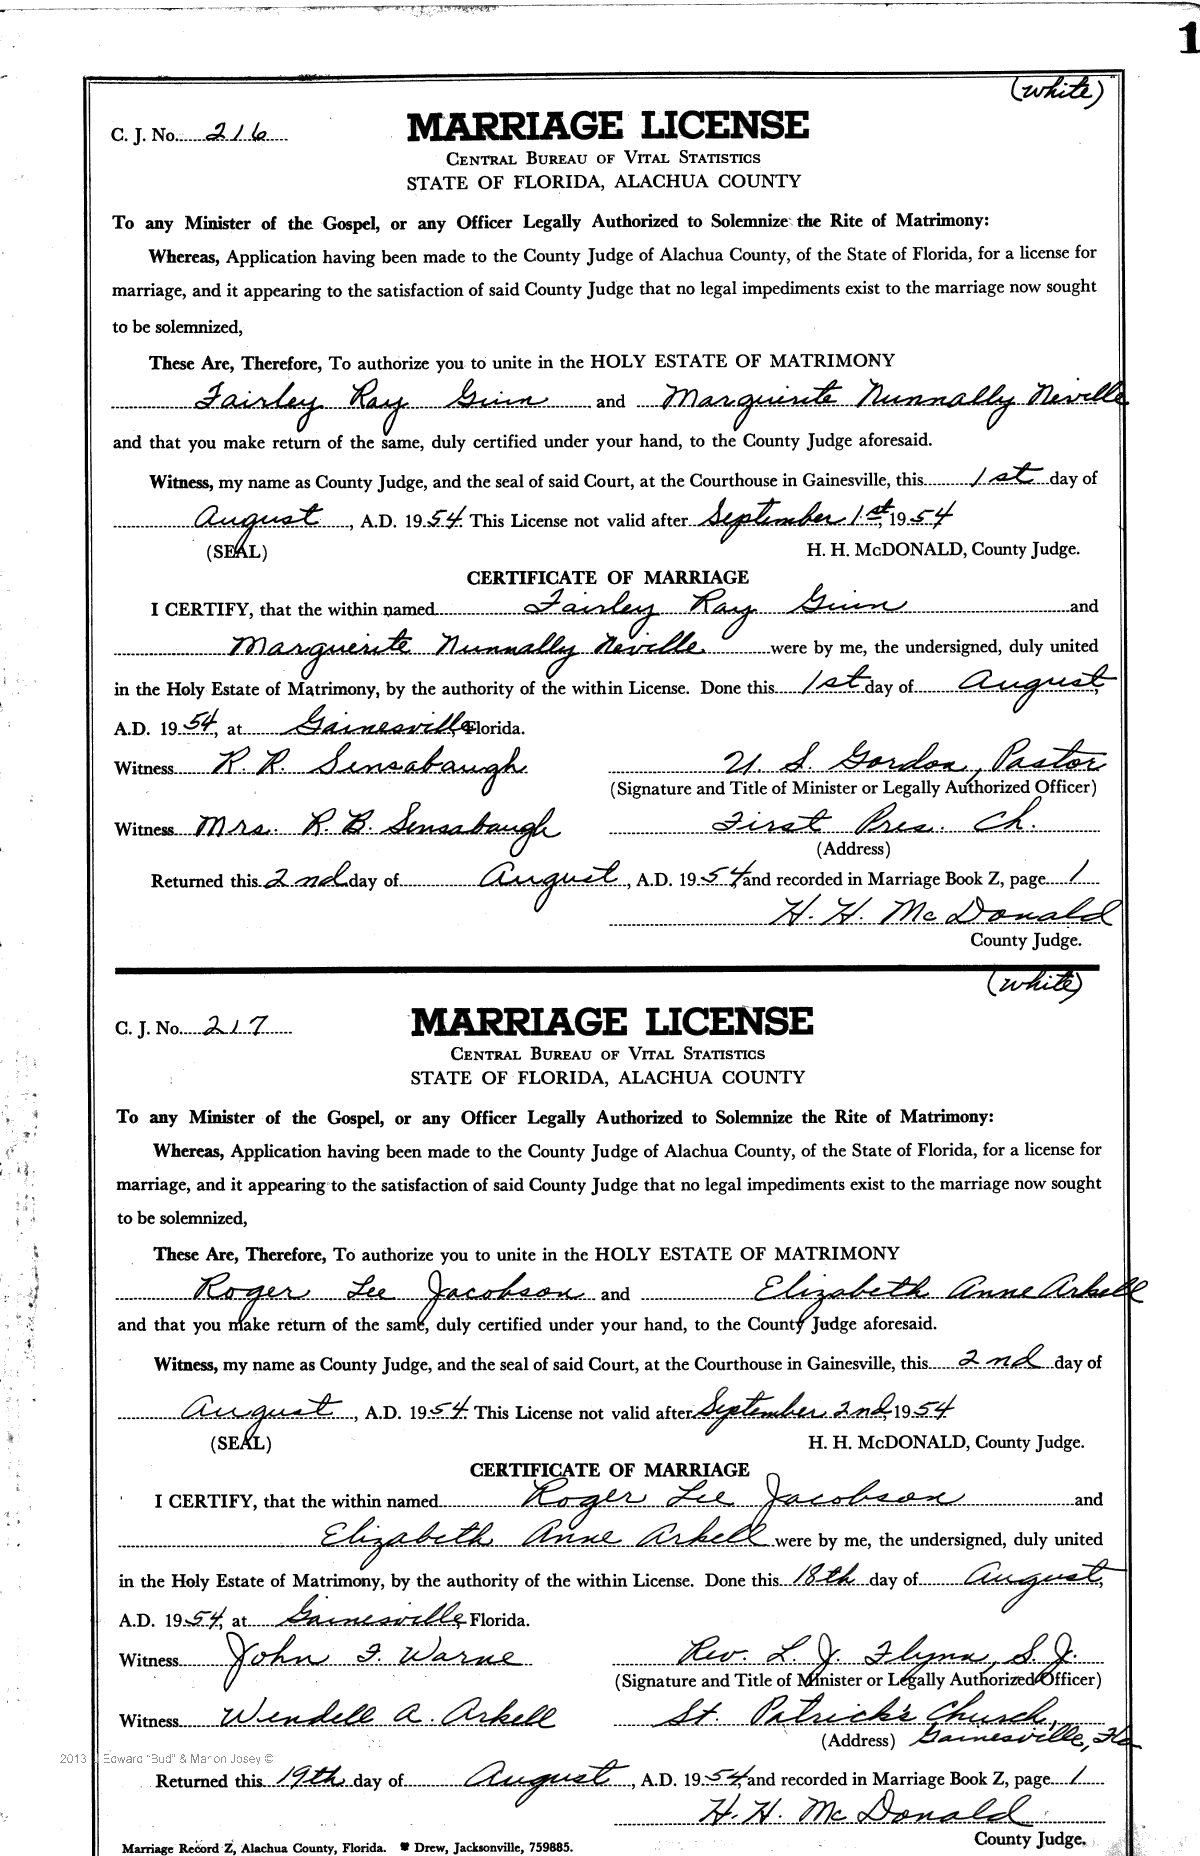 1
(white)
C. J. No. 216
MARRIAGE LICENSE
CENTRAL BUREAU OF VITAL STATISTICS
STATE OF FLORIDA, ALACHUA COUNTY
To any Minister of the Gospel, or any Officer Legally Authorized to Solemnize the Rite of Matrimony:
Whereas, Application having been made to the County Judge of Alachua County, of the State of Florida, for a license for
marriage, and it appearing to the satisfaction of said County Judge that no legal impediments exist to the marriage now sought
to be solemnized,
These Are, Therefore, To authorize you to unite in the HOLY ESTATE OF MATRIMONY
Fairley Ray Ginn and Marguerite Nunnally Neville
and that you make return of the same, duly certified under your hand, to the County Judge aforesaid.
Witness, my name as County Judge, and the seal of said Court, at the Courthouse in Gainesville, this 1st day of
August, A.D. 1954. This License not valid after September 1st, 1954
(SEAL) H. H. McDONALD, County Judge.
CERTIFICATE OF MARRIAGE
I CERTIFY, that the within named Fairley Ray Ginn and
Marguerite Nunnally Neville were by me, the undersigned, duly united
in the Holy Estate of Matrimony, by the authority of the within License. Done this 1st day of August,
A.D. 1954, at Gainesville, Florida.
Witness R. R. Sensabaugh U. S. Gordon, Pastor
(Signature and Title of Minister or Legally Authorized Officer)
Witness Mrs. R. B. Sensabaugh First Pres. Ch.
(Address)
Returned this 2nd day of August, A.D. 1954 and recorded in Marriage Book Z, page 1
H. H. McDonald
County Judge.
(white)
C. J. No. 217
MARRIAGE LICENSE
CENTRAL BUREAU OF VITAL STATISTICS
STATE OF FLORIDA, ALACHUA COUNTY
To any Minister of the Gospel, or any Officer Legally Authorized to Solemnize the Rite of Matrimony:
Whereas, Application having been made to the County Judge of Alachua County, of the State of Florida, for a license for
marriage, and it appearing to the satisfaction of said County Judge that no legal impediments exist to the marriage now sought
to be solemnized,
These Are, Therefore, To authorize you to unite in the HOLY ESTATE OF MATRIMONY
Roger Lee Jacobson and Elizabeth Anne Arkell
and that you make return of the same, duly certified under your hand, to the County Judge aforesaid.
Witness, my name as County Judge, and the seal of said Court, at the Courthouse in Gainesville, this 2nd day of
August, A.D. 1954. This License not valid after September 2nd, 1954
(SEAL) H. H. McDONALD, County Judge.
CERTIFICATE OF MARRIAGE
I CERTIFY, that the within named Roger Lee Jacobson and
Elizabeth Anne Arkell were by me, the undersigned, duly united
in the Holy Estate of Matrimony, by the authority of the within License. Done this 18th day of August,
A.D. 1954, at Gainesville, Florida.
Witness John F. Warne Rev. L. J. Flynn, S.J.
(Signature and Title of Minister or Legally Authorized Officer)
Witness Wendell A. Arkell St. Patrick's Church,
(Address) Gainesville, Fla
2013 Edward "Bud" & Marion Josey ©
Returned this 19th day of August, A.D. 1954, and recorded in Marriage Book Z, page 1
H. H. McDonald
County Judge.
Marriage Record Z, Alachua County, Florida. Drew, Jacksonville, 759885.